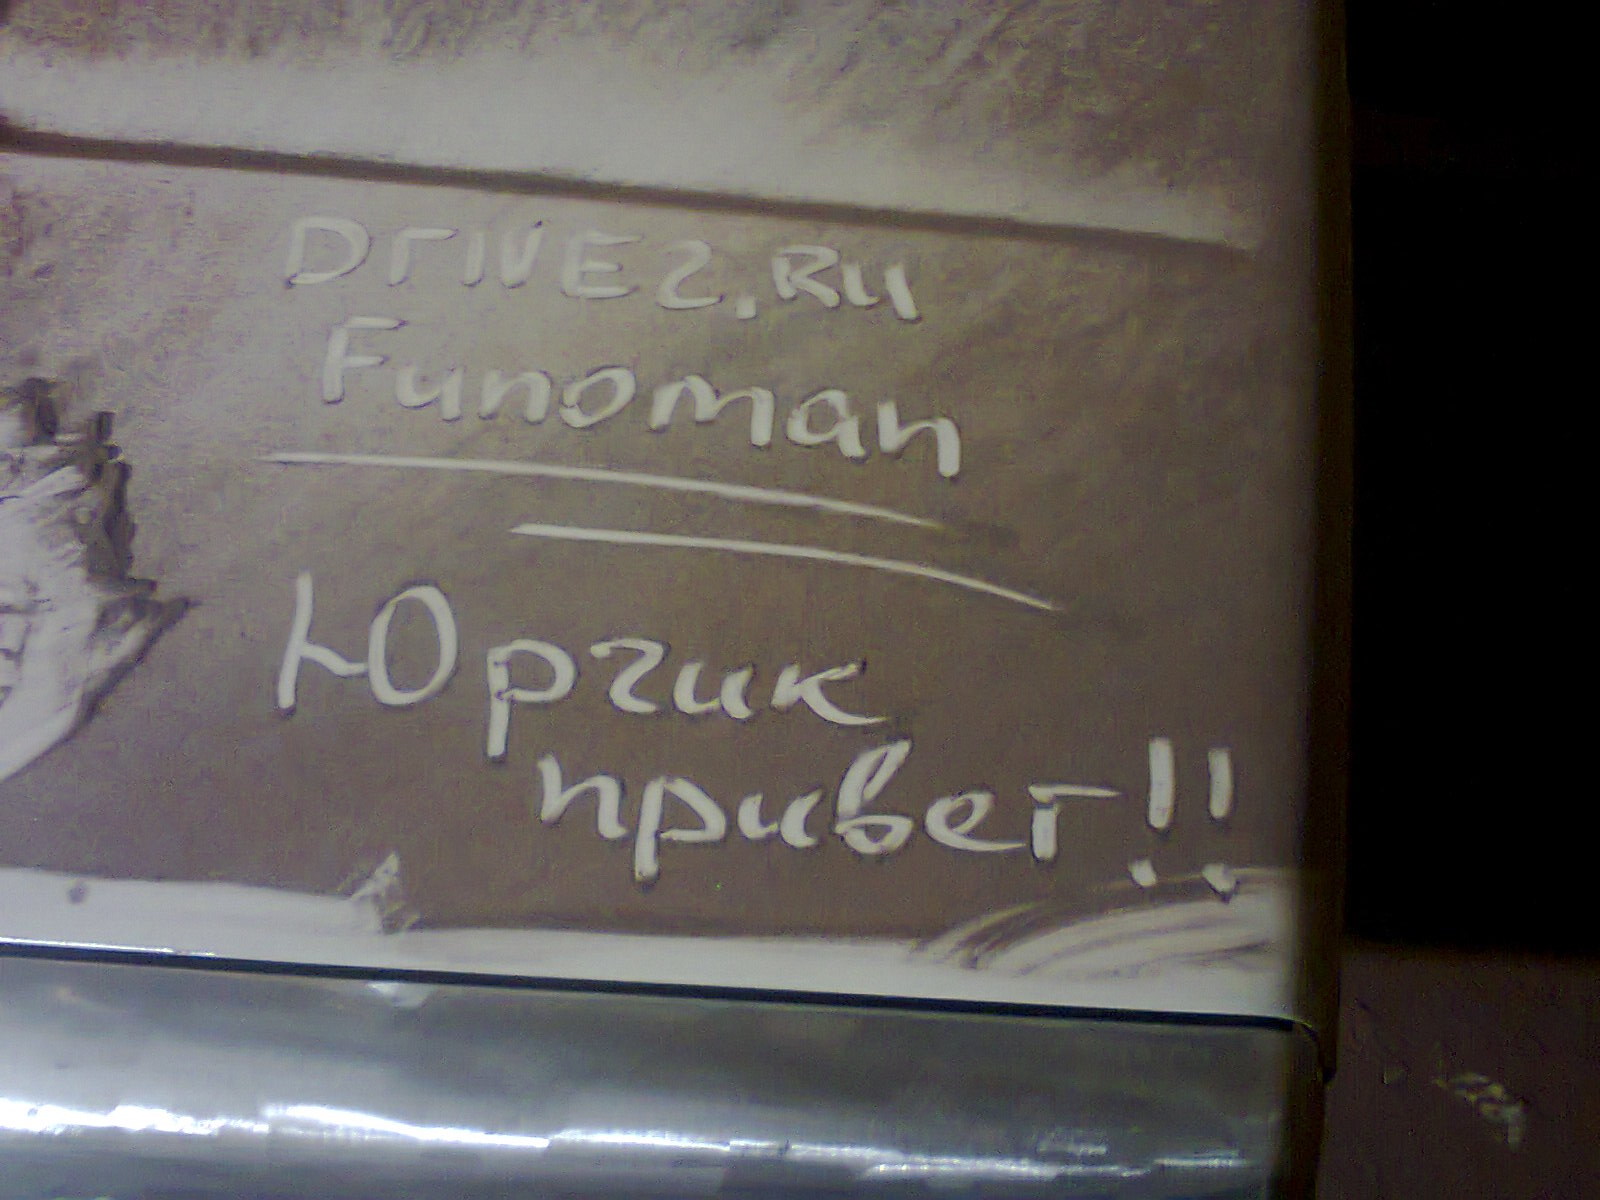 DrIVE2.RU
Funoman
Юрчик
привет!!